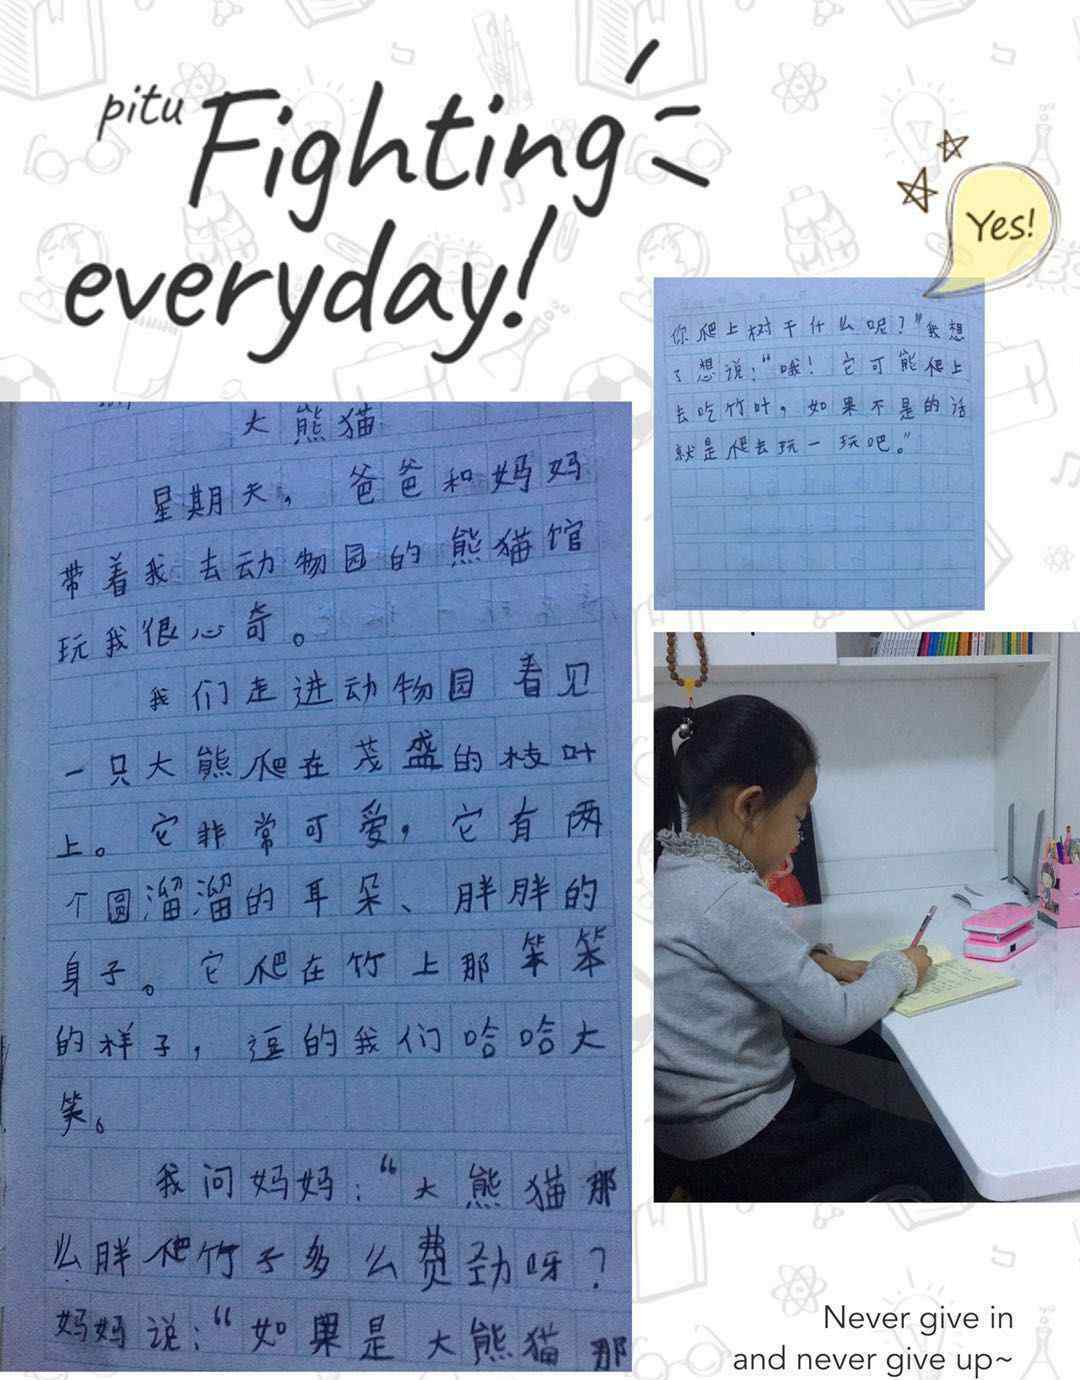 pitu
Fighting
everyday!
Yes!
大熊猫
星期天，爸爸和妈妈
带着我去动物园的熊猫馆
玩我很心奇。
我们走进动物园看见
一只大熊爬在茂盛的枝叶
上。它非常可爱，它有两
个圆溜溜的耳朵、胖胖的
身子。它爬在竹上那笨笨
的样子，逗的我们哈哈大
笑。
我问妈妈：“大熊猫那
么胖爬竹子多么费劲呀？
妈妈说：“如果是大熊猫那
你爬上树干什么呢？”我想
了想说：“哦！它可能爬上
去吃竹叶，如果不是的话
就是爬去玩一玩吧。”
Never give in
and never give up~